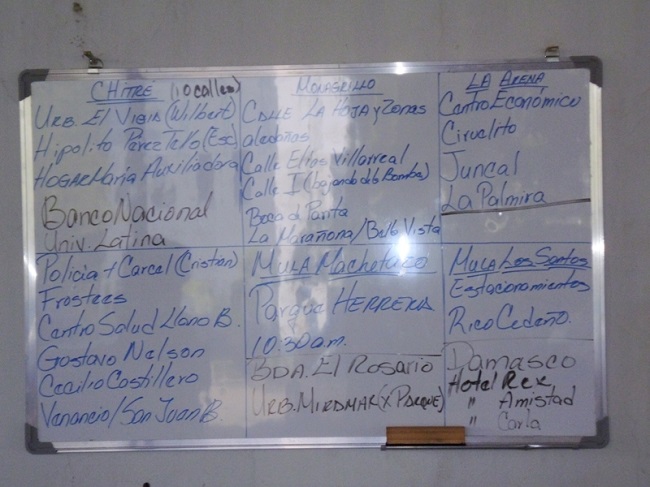 CHITRÉ (10 calles)
Urb. El Vigia (Wilbert)
Hipolito Perez Tello (Esc)
HOGAR María Auxiliadora
Banco Nacional
Univ. Latina
Policia + Carcel (Cristian)
Frostees
Centro Salud Llano B.
Gostavo Nelson
Cecilio Castillero
Venancio/San Juan B.
MONAGRILLO
CALLE LA HOJA y Zonas
aledañas
Calle Elías Villarreal
Calle I (bajando de la Bomba)
Boca d Parita
La Marañona/Bella Vista
MULA Machetazo
Parque HERRERA
10:30 a.m.
BDA. El Rosario
URB. MIRAMAR (X PARQUE)
LA ARENA
Centro Económico
Ciruelito
Juncal
La Palmira
MULA Los Santos
Estacionamientos
Rico Cedeño.
Damasco
Hotel Rex
" Amistad
" Carla